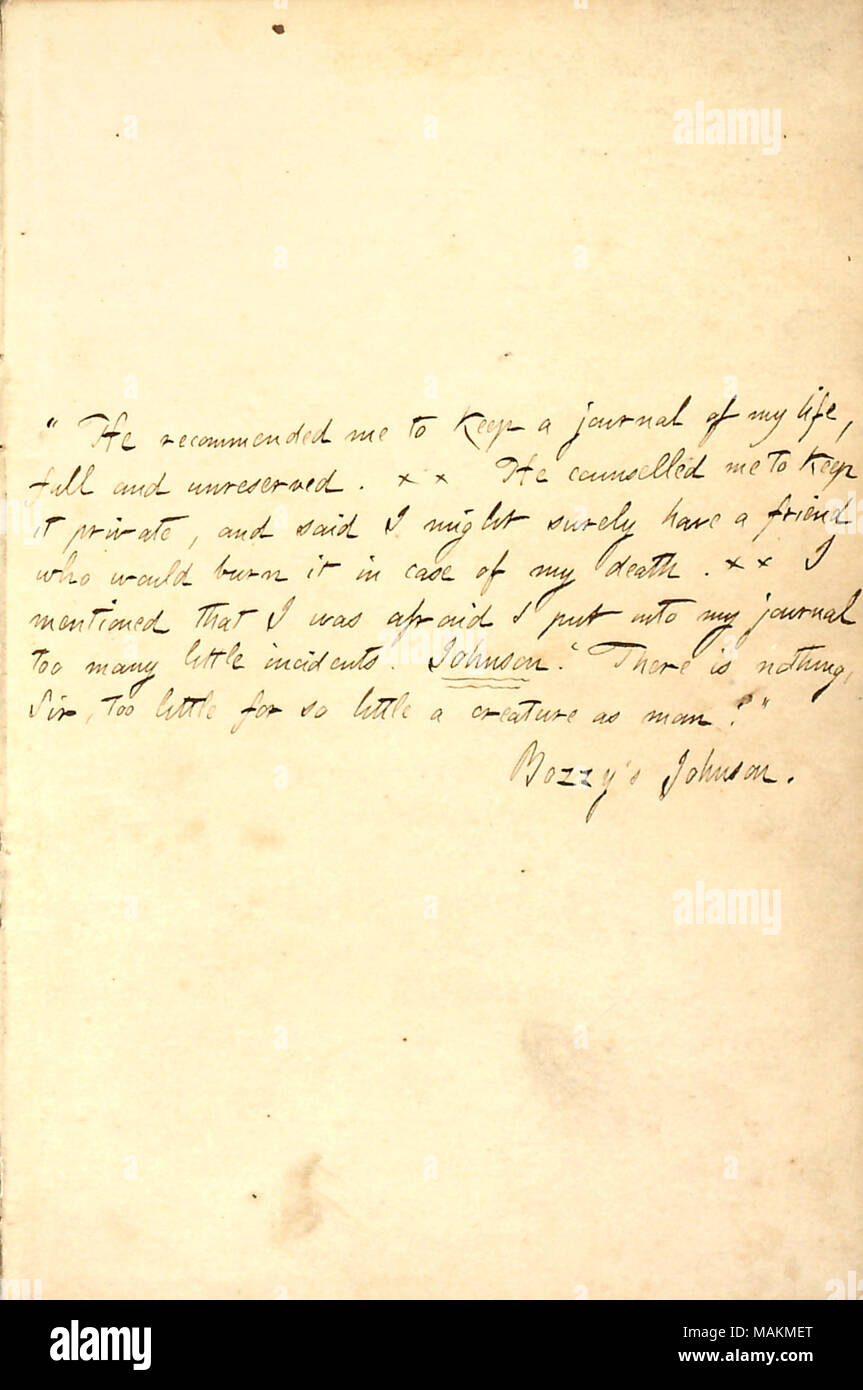 " He recommended me to keep a journal of my life,
full and unreserved. × × He counselled me to keep
it private, and said I might surely have a friend
who would burn it in case of my death. × × I
mentioned that I was afraid I put into my journal
too many little incidents. Johnson. "There is nothing,
Sir, too little for so little a creature as man!"
Bozzy's Johnson.
alamy
alamy
alamy
Image ID: MAKMET
www.alamy.com